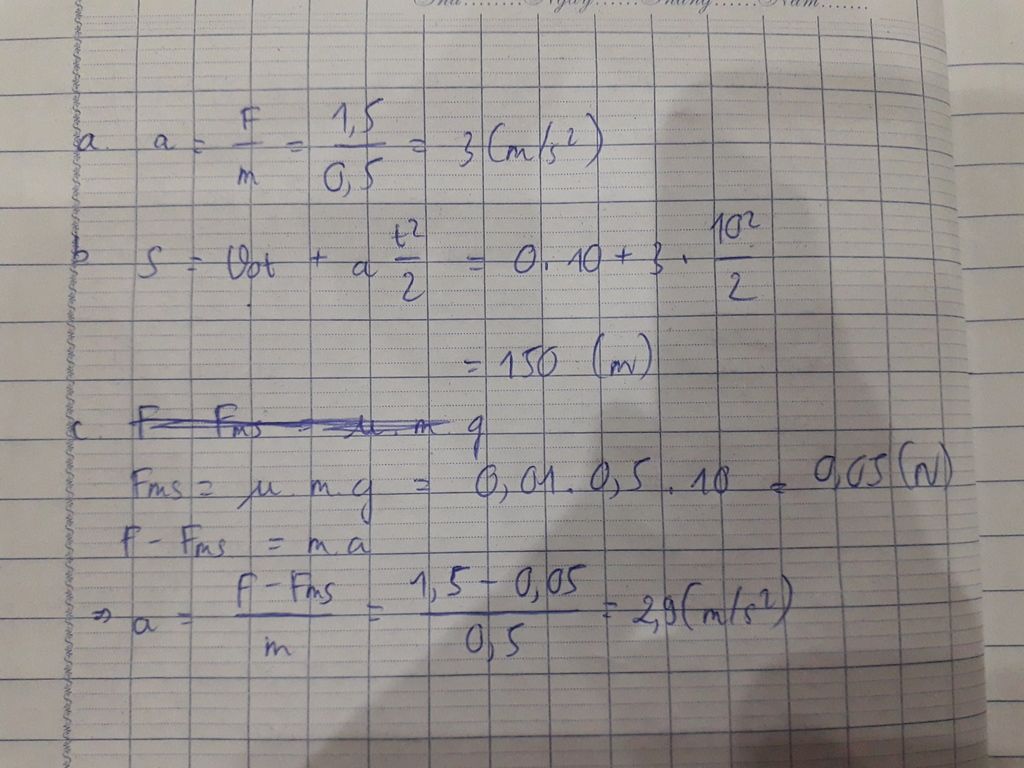 Thứ........Ngày......Tháng......Năm.......
a. a = F/m = 1,5/0,5 = 3 (m/s²)
b S = v₀t + a t²/2 = 0.10 + 3 . 10²/2
= 150 (m)
c. F - Fms = μ.m.g
Fms = μ.m.g = 0,01.0,5.10 = 0,05 (N)
F - Fms = m.a
⇒ a = F - Fms/m = 1,5 - 0,05/0,5 = 2,9 (m/s²)